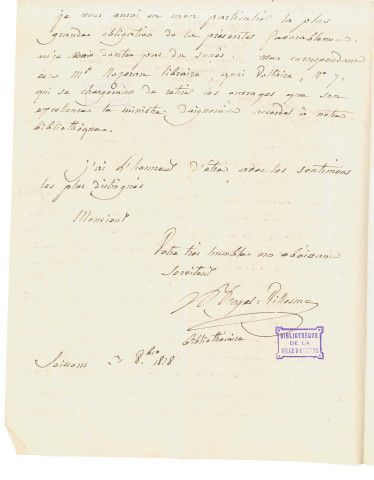 je vous aurai en mon particulier la plus
grande obligation de la présenter favorablement.
je ne doute pas du succès mon correspondant
est Mr libraire, quai Voltaire, N° 7.
qui se chargera de retirer les ouvrages que son
excellence le ministre daignera accorder à notre
bibliothèque.
j'ai l'honneur d'être avec les sentimens
les plus distingués
Monsieur
Votre très humble et obéissant
Serviteur
bibliothécaire
Soissons 8.bre 1818
BIBLIOTHÈQUE
DE LA
VILLE